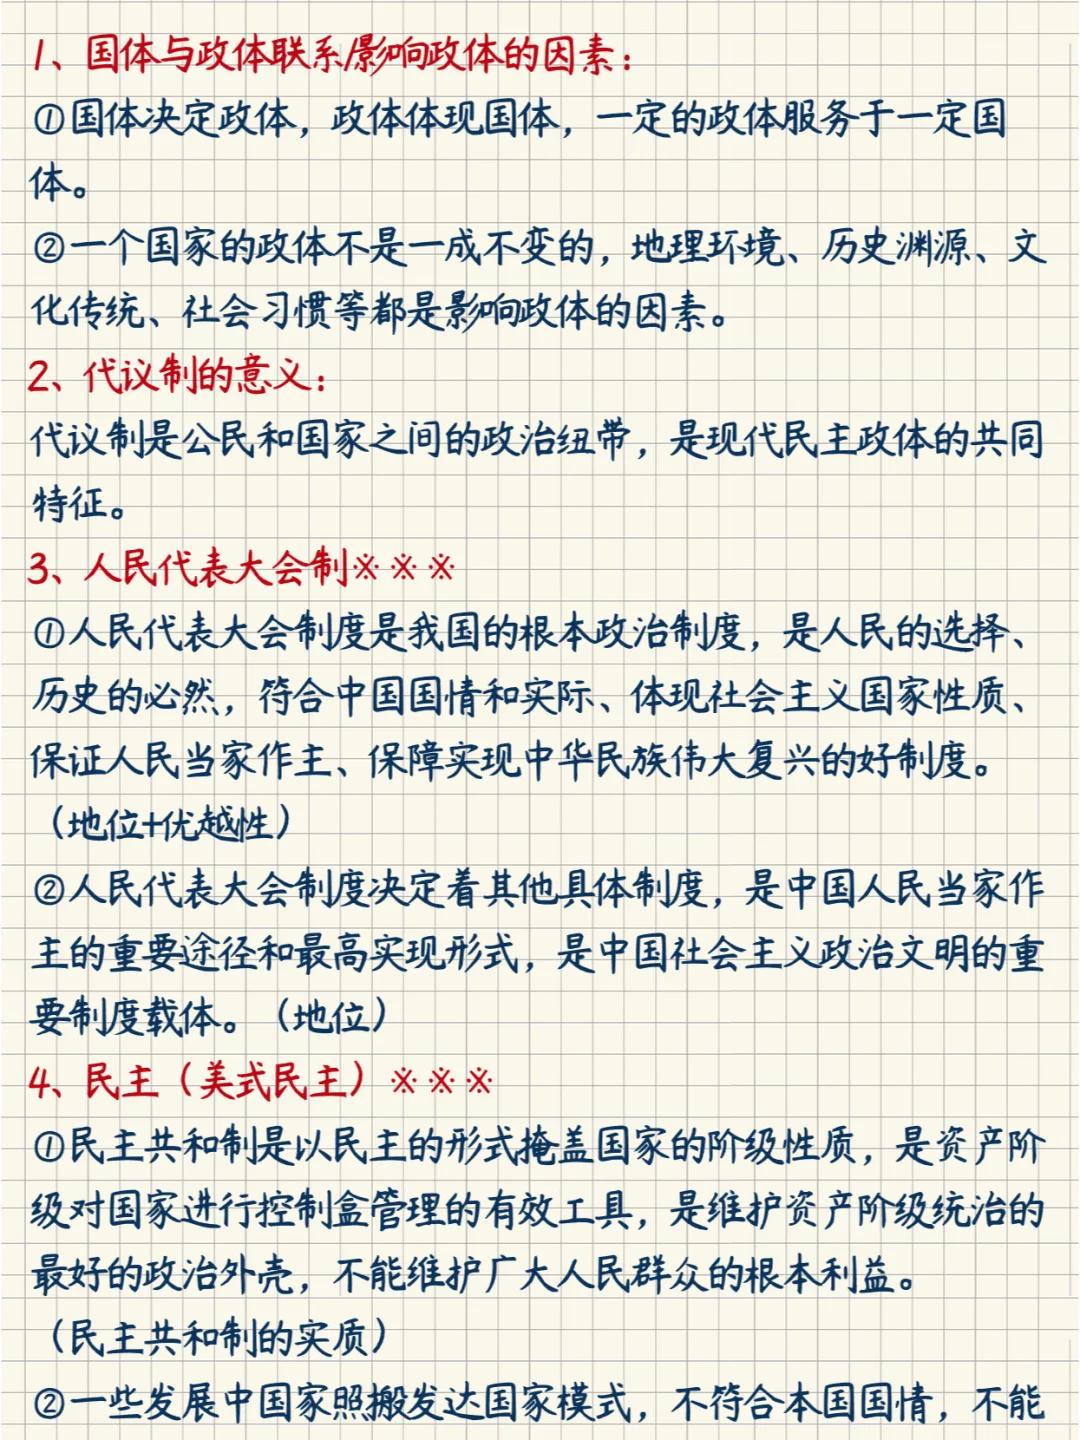 1、国体与政体联系/影响政体的因素：
①国体决定政体，政体体现国体，一定的政体服务于一定国
体。
②一个国家的政体不是一成不变的，地理环境、历史渊源、文
化传统、社会习惯等都是影响政体的因素。
2、代议制的意义：
代议制是公民和国家之间的政治纽带，是现代民主政体的共同
特征。
3、人民代表大会制※※※
①人民代表大会制度是我国的根本政治制度，是人民的选择、
历史的必然，符合中国国情和实际、体现社会主义国家性质、
保证人民当家作主、保障实现中华民族伟大复兴的好制度。
（地位+优越性）
②人民代表大会制度决定着其他具体制度，是中国人民当家作
主的重要途径和最高实现形式，是中国社会主义政治文明的重
要制度载体。（地位）
4、民主（美式民主）※※※
①民主共和制是以民主的形式掩盖国家的阶级性质，是资产阶
级对国家进行控制盒管理的有效工具，是维护资产阶级统治的
最好的政治外壳，不能维护广大人民群众的根本利益。
（民主共和制的实质）
②一些发展中国家照搬发达国家模式，不符合本国国情，不能